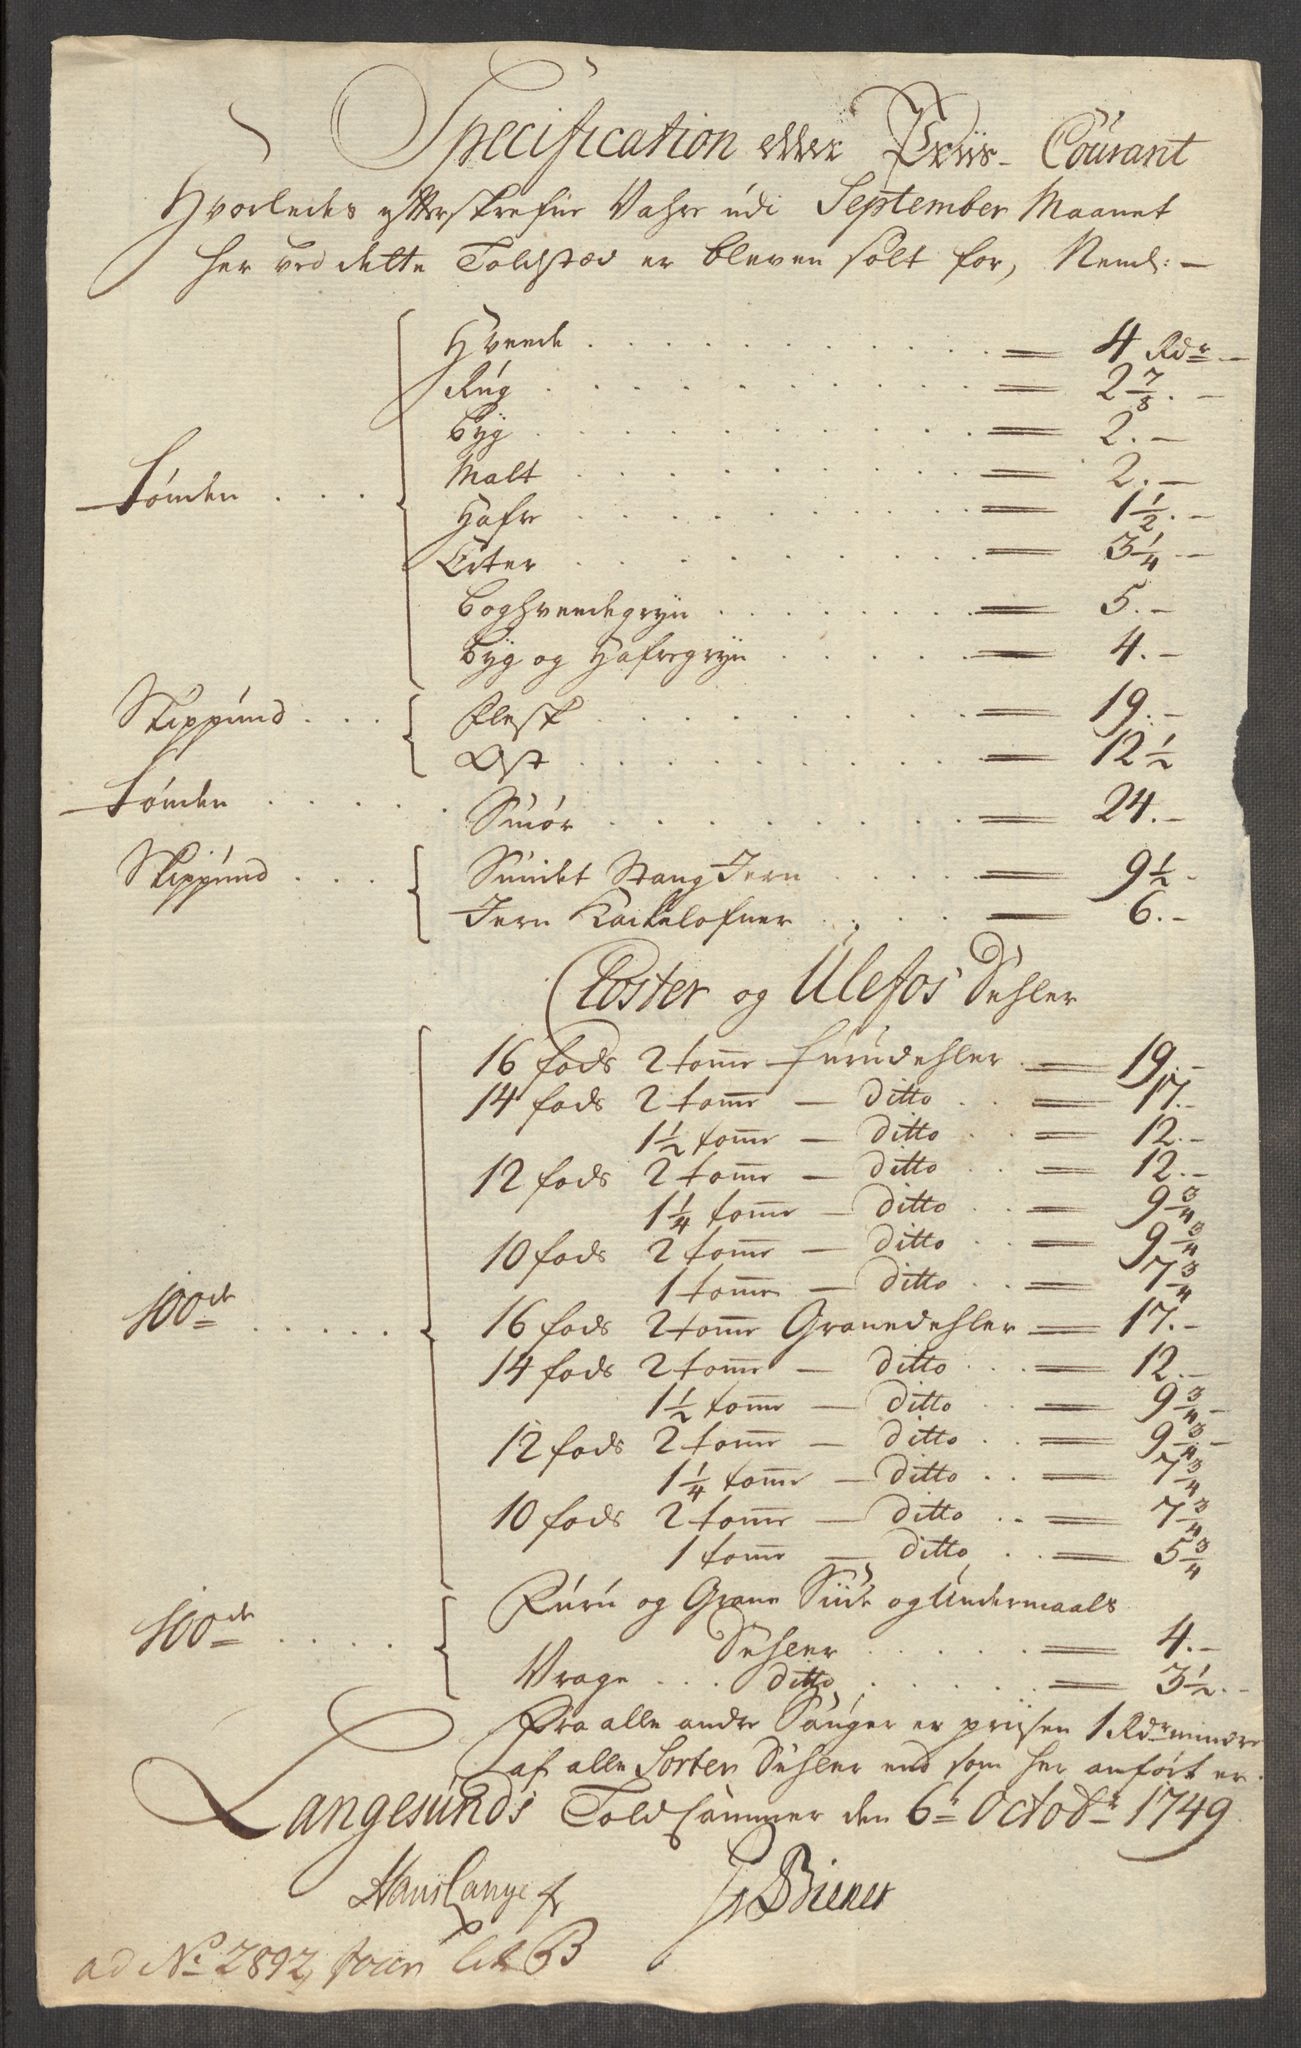 Specification eller Priis-Courant
Hvorledes efterskrefne Vahre udi September Maanet
her ved dette Toldstæd er bleven solt for, Neml: —
Tönden . . . Hveede . . . = 4 Rdr. —
Rúg . . . = 2 7/8. —
Byg . . . = 2. —
Malt . . . = 2. —
Hafre . . . = 1 1/2. —
Erter . . . = 3 1/4 —
Boghveedegryn . . . = 5. —
Byg og Hafregryn . . . = 4. —
Skippúnd . . . Flesk . . . = 19. —
Ost . . . = 12 1/2
Tönden . . . Smör . . . = 24. —
Skippúnd . . . Smidet Stang Jern . . . = 9 1/2 -
Jern Kackelofner . . . = 6. —
Closter og Ulefos Dehler
100de . . . 16 fods 2 tomme Furudehler = 19. —
14 fods 2 tomme — ditto . . = 17. —
1 1/2 tomme — ditto . . = 12. —
12 fods 2 tomme — ditto . . = 12. —
1 1/4 tomme — ditto . . = 9 3/4
10 fods 2 tomme — ditto . . = 9 3/4
1 tomme — ditto . . = 7 3/4
16 fods 2 tomme Granedehler = 17. —
14 fods 2 tomme — ditto . . = 12. —
1 1/2 tomme — ditto . . = 9 3/4 —
12 fods 2 tomme — ditto . . = 9 3/4 —
1 1/4 tomme — ditto . . = 7 3/4
10 fods 2 tomme — ditto . . = 7 3/4
1 tomme — ditto . . = 5 3/4
100de . . . Fúrú og Grane Siide og Undermaals
Dehler . . . = 4. —
Vrage . . . ditto . . . = 3 1/2. —
Fra alle andre Sauger er priisen 1 Rdr mindre
af alle Sorter Dehler end som her anfört er.
Langesúnds Told Cammer den 6te Octobr 1749
Hans Lange
Biener
ad No 2892, Litr B